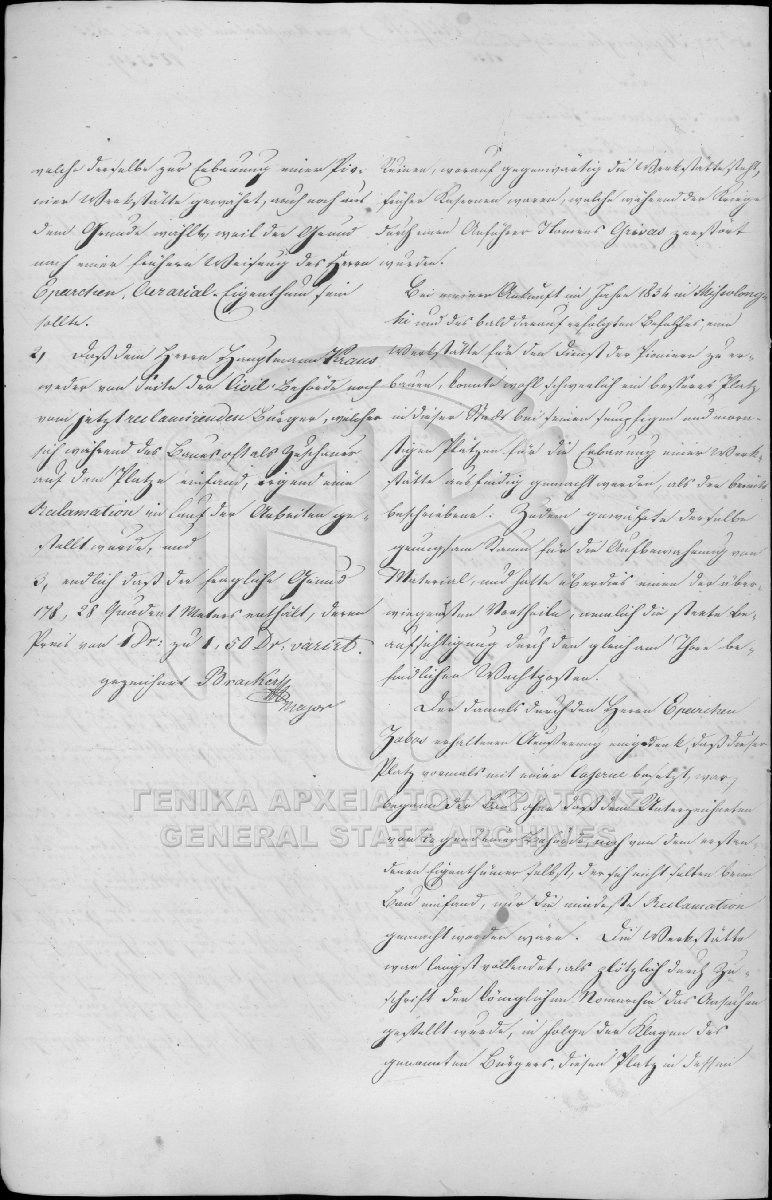 welche derselbe zur Erbauung einer Pio-
nier Werkstätte gewählt, auch noch aus
dem Grunde wählte, weil der Grund
nach einer frühern Weisung des Herrn
Eparchen, Aerarial-Eigenthum sein
sollte.
2, Daß dem Herrn Hauptmann Kraus
weder von Seite der Civil-Behörde noch
vom jetzt reclamirenden Bürger, welcher
sich während des Baues oft als Zuschauer
auf dem Platze einfand, irgend eine
Reclamation im Lauf der Arbeiten ge-
stellt wurde, und
3, endlich daß der fragliche Grund
178, 28 Quadrat Meters enthält, deren
Preis von 1 Dr: zu 1,50 Dr. varirt.
gezeichnet Bracker
Major
Ruinen, worauf gegenwärtig die Werkstätte steht,
früher Kasernen waren, welche während des Kriegs
durch einen Anführer Namens Grivas zerstört
wurden.
Bei meiner Ankunft im Jahre 1834 in Missolong-
hi und des bald darauf erfolgten Befehles, eine
Werkstätte für den Dienst der Pioniere zu er-
bauen, konnte wohl schwerlich ein besserer Platz
in dieser Stadt bei seinen sumpfigen und mora-
stigen Plätzen für die Erbauung einer Werk-
stätte ausfindig gemacht werden, als der bereits
beschriebene. Zudem gewährte derselbe
genugsam Raum für die Aufbewahrung von
Material, und hatte überdies einen der über-
wiegendsten Vortheile, nemlich die stete Be-
aufsichtigung durch den gleich am Thore be-
findlichen Wachtposten.
Der damals durch den Herrn Eparchen
erhaltenen Äußerung eingedenk, daß dieser
Platz vormals mit einer Caserne besetzt war,
begann der Bau ohne daß dem Unterzeichneten
von irgend einer Behörde, noch von dem
Eigenthümer selbst, der sich nicht selten beim
Bau einfand, nur die mindeste Reclamation
gemacht worden wäre. Die Werkstätte
war längst vollendet, als plötzlich durch Zu-
schrift der königlichen Nomarchie das Ansuchen
gestellt wurde, in Folge der Klagen des
genannten Bürgers, diesen Platz in dessen
ΓΕΝΙΚΑ ΑΡΧΕΙΑ ΤΟΥ ΚΡΑΤΟΥΣ
GENERAL STATE ARCHIVES